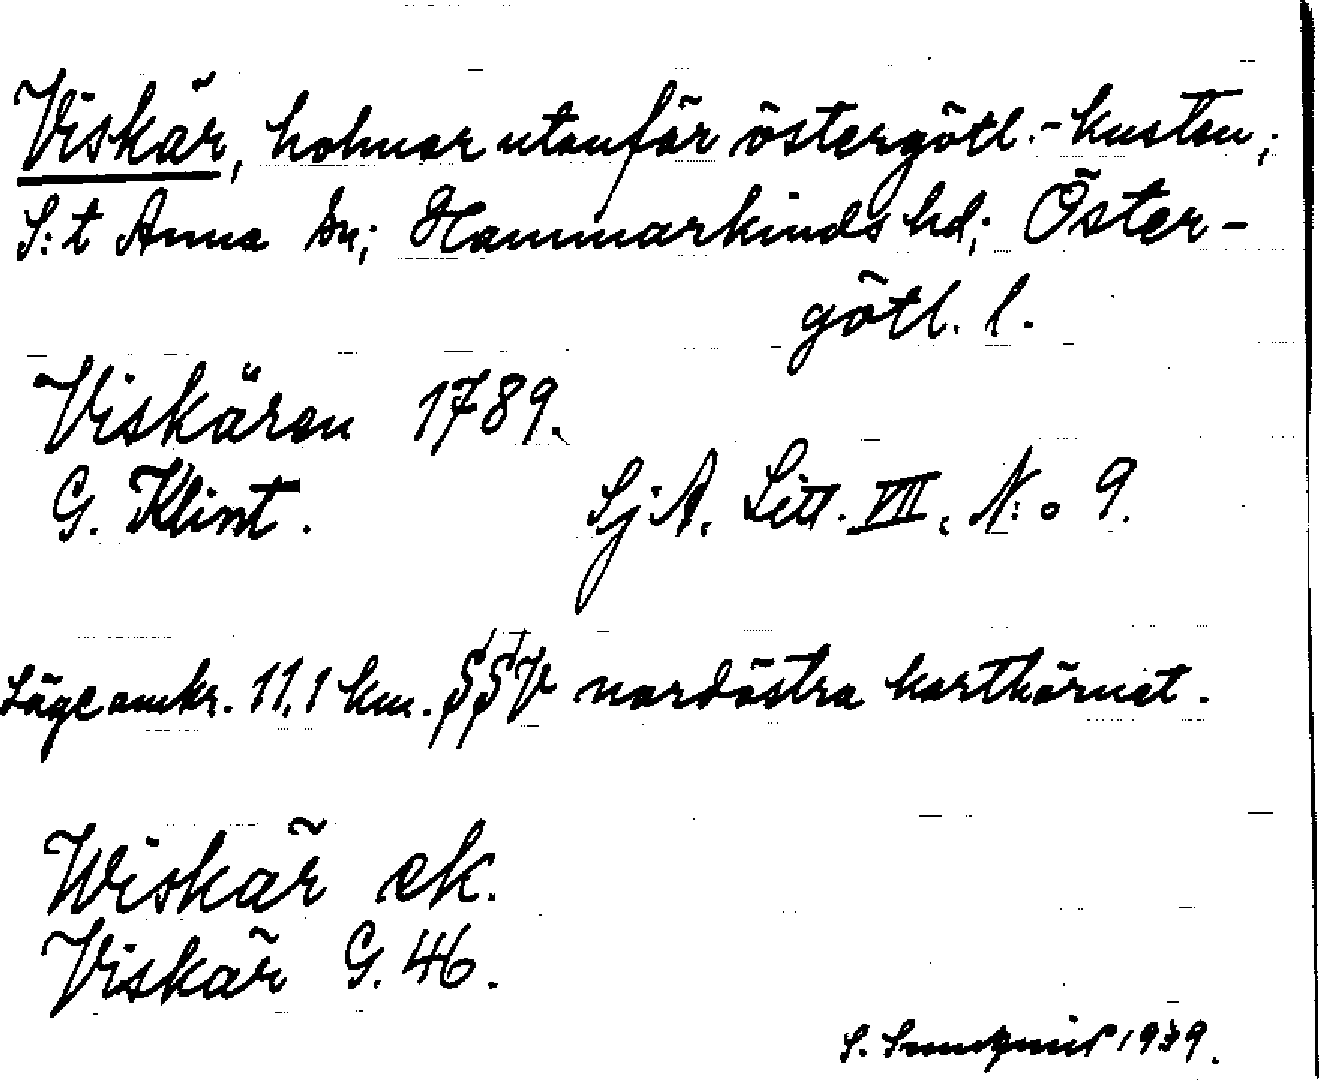 Viskär, holmar utanför östergötl.-kusten;
S:t Anna sn; Hammarkinds hd; Öster-
götl. l.
Viskären 1789.
G. Klint. SjA. Litt. VII. N:o 9.
Läge omkr. 11,1 km. SSV nordöstra karthörnet.
Wiskär ek.
Viskär G. 46.
S. 1939.